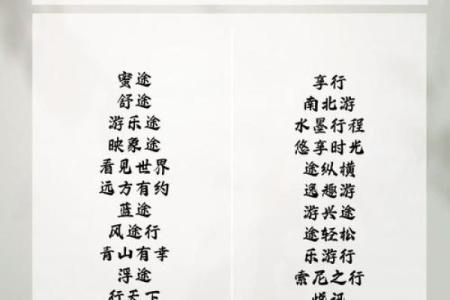 蜜途
舒途
游乐途
映象途
看见世界
远方有约
蓝途
风途行
青山有幸
浮途
行天下
享行
南北游
水墨行程
悠享时光
途纵横
遇趣游
游兴途
途轻松
乐游行
索尼之行